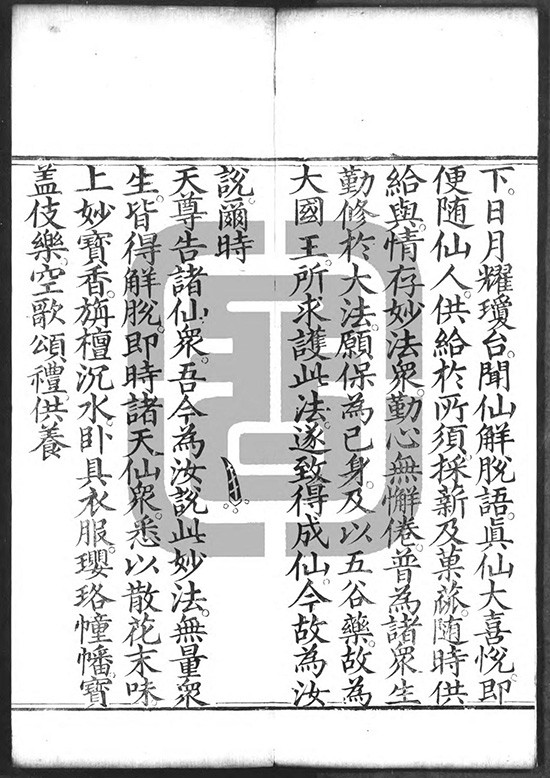 下。日月耀瓊台。聞仙解脫語。真仙大喜悅。即
便随仙人。供給於所須。採新及菓蓏。随時供
給與。情存妙法衆。勤心無懈倦。普為諸衆生
勤修於大法。願保為己身。及以五谷藥。故為
大國王。所求護此法。遂致得成仙。今故為汝
說。爾時
天尊告諸仙衆。吾今為汝說此妙法。無量衆
生。皆得解脫。即時諸天仙衆。悉以散花末味。
上妙寶香。旃檀沉水。卧具衣服。瓔珞幢幡。寶
盖伎樂。空歌頌禮。供養